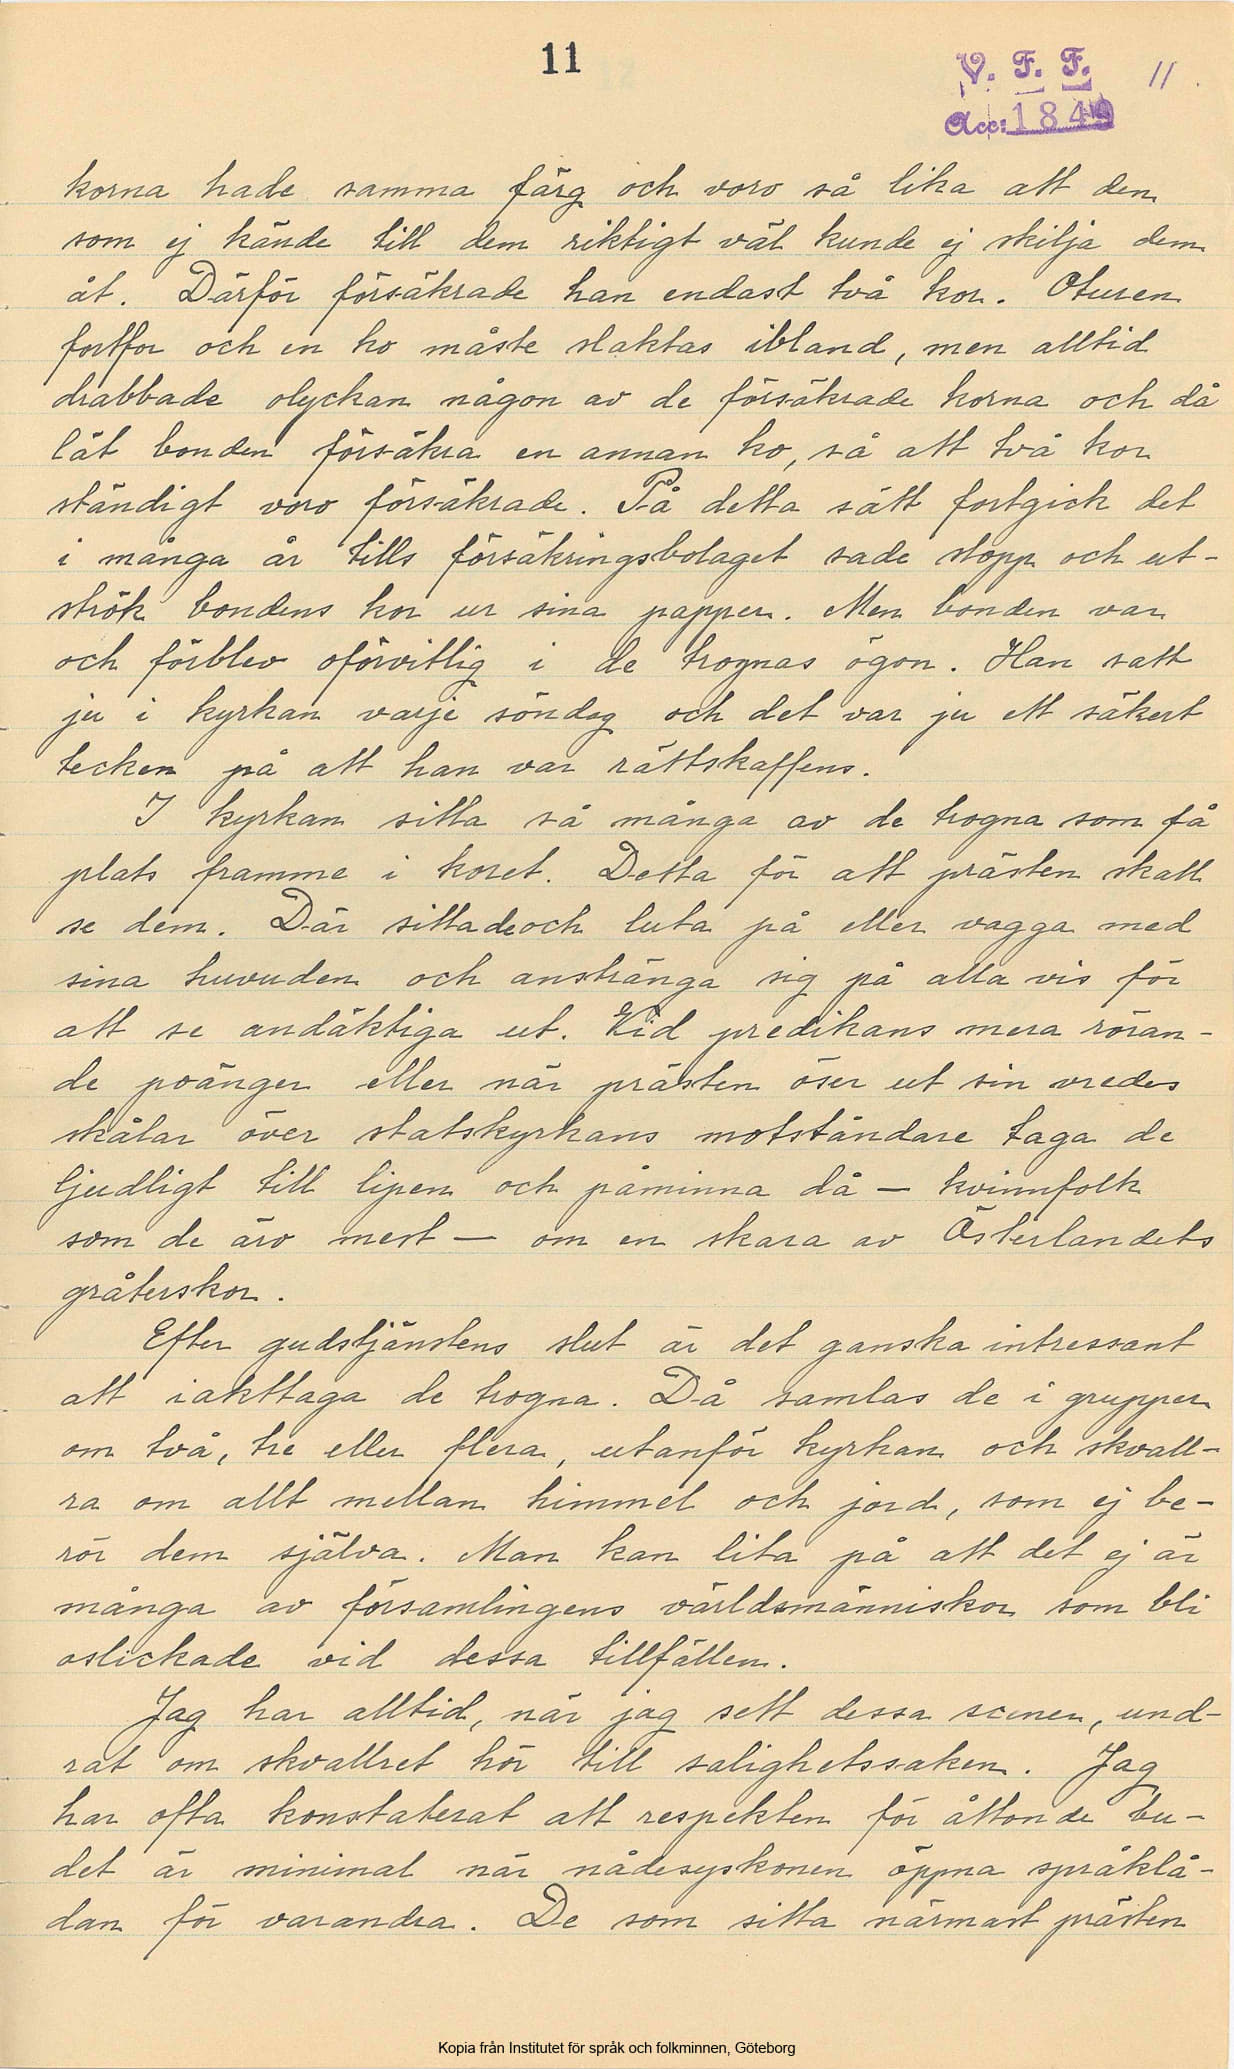 11
V. F. F.
Acc: 1849
11
korna hade samma färg och voro så lika att den
som ej kände till dem riktigt väl kunde ej skilja dem
åt. Därför försäkrade han endast två kor. Oturen
fortfor och en ko måste slaktas ibland, men alltid
drabbade olyckan någon av de försäkrade korna och då
lät bonden försäkra en annan ko, så att två kor
ständigt voro försäkrade. På detta sätt fortgick det
i många år tills försäkringsbolaget sade stopp och ut-
strök bondens kor ur sina papper. Men bonden var
och förblev oförvitlig i de trognas ögon. Han satt
ju i kyrkan varje söndag och det var ju ett säkert
tecken på att han var rättskaffens.
I kyrkan sitta så många av de trogna som få
plats framme i koret. Detta för att prästen skall
se dem. Där sitta de och luta på eller vagga med
sina huvuden och anstränga sig på alla vis för
att se andäktiga ut. Vid predikans mera röran-
de poänger eller när prästen öser ut sin vredes
skålar över statskyrkans motståndare taga de
ljudligt till lipen och påminna då — kvinnfolk
som de äro mest — om en skara av Österlandets
gråterskor.
Efter gudstjänstens slut är det ganska intressant
att iakttaga de trogna. Då samlas de i grupper
om två, tre eller flera, utanför kyrkan och skvall-
ra om allt mellan himmel och jord, som ej be-
rör dem själva. Man kan lita på att det ej är
många av församlingens världsmänniskor som bli
oslickade vid dessa tillfällen.
Jag har alltid, när jag sett dessa scener, und-
rat om skvallret hör till salighetssaken. Jag
har ofta konstaterat att respekten för åttonde bu-
det är minimal när nådesyskonen öppna språklå-
dan för varandra. De som sitta närmast prästen
Kopia från Institutet för språk och folkminnen, Göteborg